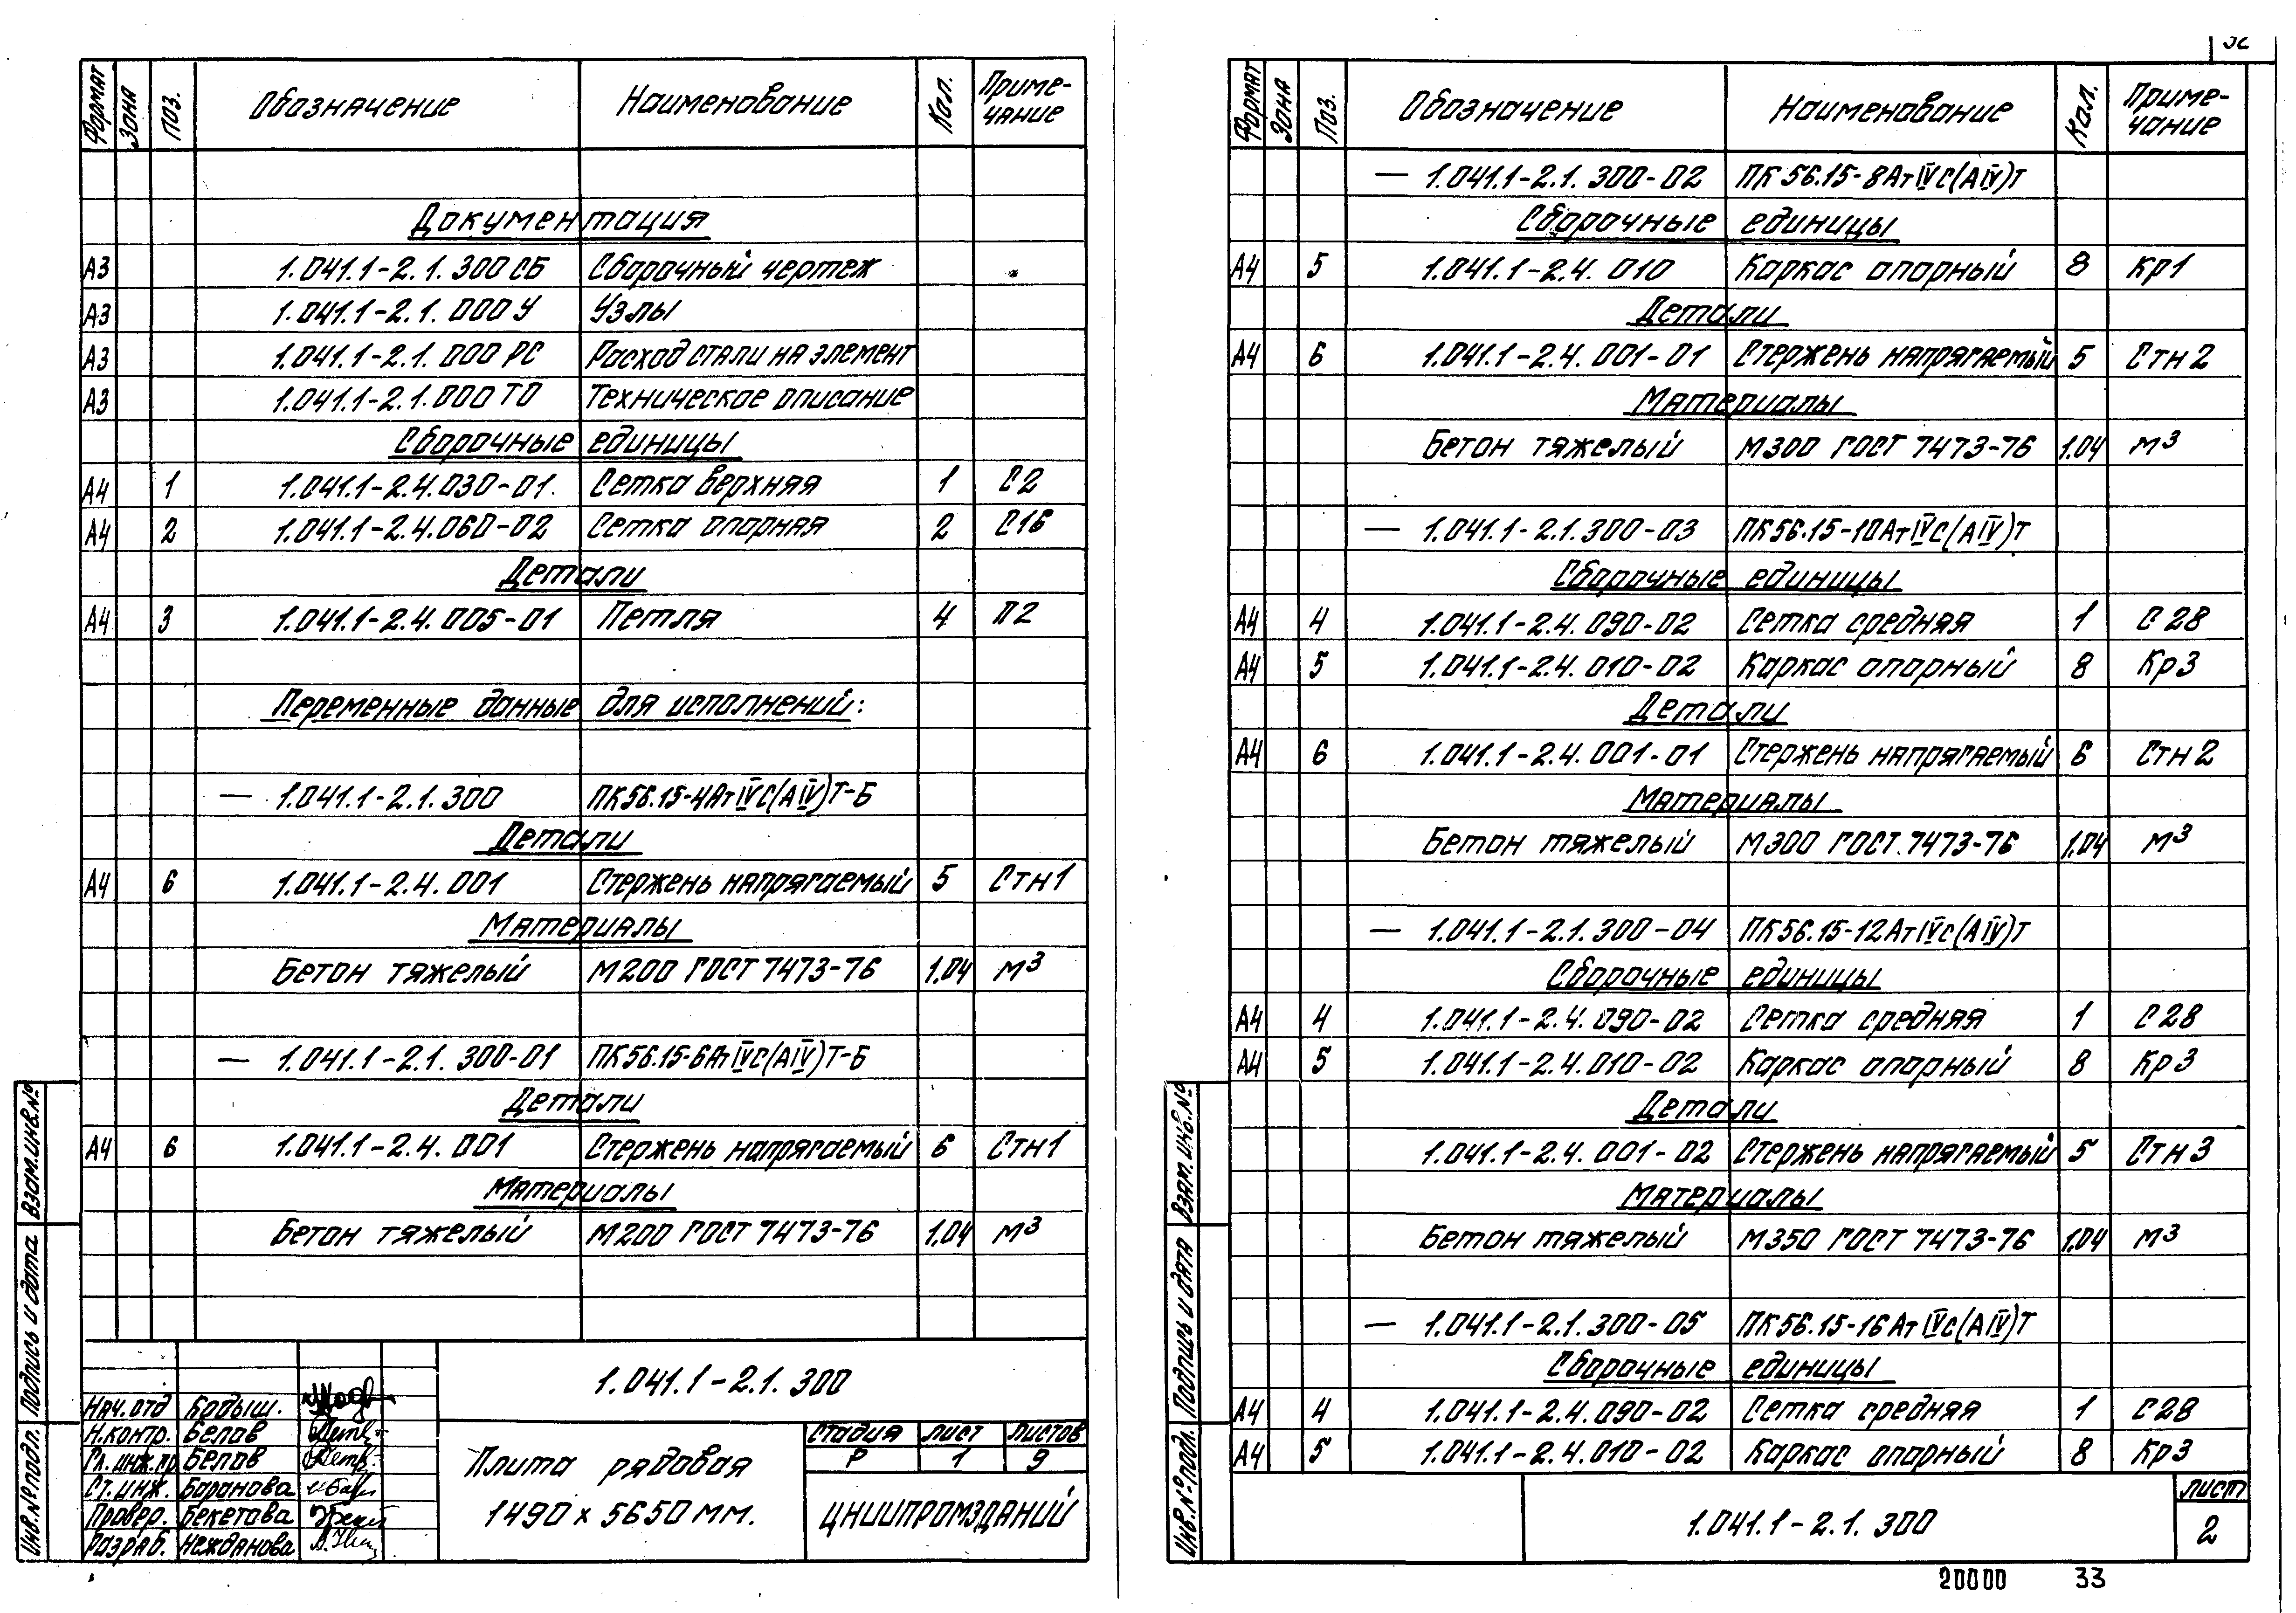 Формат Зона Поз. Обозначение Наименование Кол. Приме-чание
Документация
А3 1.041.1-2.1.300СБ Сборочный чертеж
А3 1.041.1-2.1.000У Узлы
А3 1.041.1-2.1.000РС Расход стали на элемент
А3 1.041.1-2.1.000ТО Техническое описание
Сборочные единицы
А4 1 1.041.1-2.4.030-01. Сетка верхняя 1 С2
А4 2 1.041.1-2.4.060-02 Сетка опорная 2 С16
Детали
А4 3 1.041.1-2.4.005-01 Петля 4 П2
Переменные данные для исполнений:
— 1.041.1-2.1.300 ПК56.15-4АтIVС(АIV)Т-Б
Детали
А4 6 1.041.1-2.4.001 Стержень напрягаемый 5 Стн1
Материалы
Бетон тяжелый М200 ГОСТ 7473-76 1.04 м³
— 1.041.1-2.1.300-01 ПК56.15-6АтIVС(АIV)Т-Б
Детали
А4 6 1.041.1-2.4.001 Стержень напрягаемый 6 Стн1
Материалы
Бетон тяжелый М200 ГОСТ 7473-76 1.04 м³
1.041.1-2.1.300
Нач.отд Кодыш.
Н.контр. Белов
Гл.инж.пр Белов
Ст.инж. Баранова
Провер. Бекетова
Разраб. Нежданова
Плита рядовая
1490 х 5650 мм.
Стадия Лист Листов
Р 1 9
ЦНИИПРОМЗДАНИЙ
Инв.№подл. Подпись и дата Взам.инв.№
Формат Зона Поз. Обозначение Наименование Кол. Приме-чание
— 1.041.1-2.1.300-02 ПК56.15-8АтIVС(АIV)Т
Сборочные единицы
А4 5 1.041.1-2.4.010 Каркас опорный 8 Кр1
Детали
А4 6 1.041.1-2.4.001-01 Стержень напрягаемый 5 Стн2
Материалы
Бетон тяжелый М300 ГОСТ 7473-76 1.04 м³
— 1.041.1-2.1.300-03 ПК56.15-10АтIVС(АIV)Т
Сборочные единицы
А4 4 1.041.1-2.4.090-02 Сетка средняя 1 С28
А4 5 1.041.1-2.4.010-02 Каркас опорный 8 Кр3
Детали
А4 6 1.041.1-2.4.001-01 Стержень напрягаемый 6 Стн2
Материалы
Бетон тяжелый М300 ГОСТ.7473-76 1.04 м³
— 1.041.1-2.1.300-04 ПК56.15-12АтIVС(АIV)Т
Сборочные единицы
А4 4 1.041.1-2.4.090-02 Сетка средняя 1 С28
А4 5 1.041.1-2.4.010-02 Каркас опорный 8 Кр3
Детали
1.041.1-2.4.001-02 Стержень напрягаемый 5 Стн3
Материалы
Бетон тяжелый М350 ГОСТ 7473-76 1.04 м³
— 1.041.1-2.1.300-05 ПК56.15-16АтIVС(АIV)Т
Сборочные единицы
А4 4 1.041.1-2.4.090-02 Сетка средняя 1 С28
А4 5 1.041.1-2.4.010-02 Каркас опорный 8 Кр3
1.041.1-2.1.300
Лист
2
Инв.№подл. Подпись и дата Взам.инв.№
20000 33